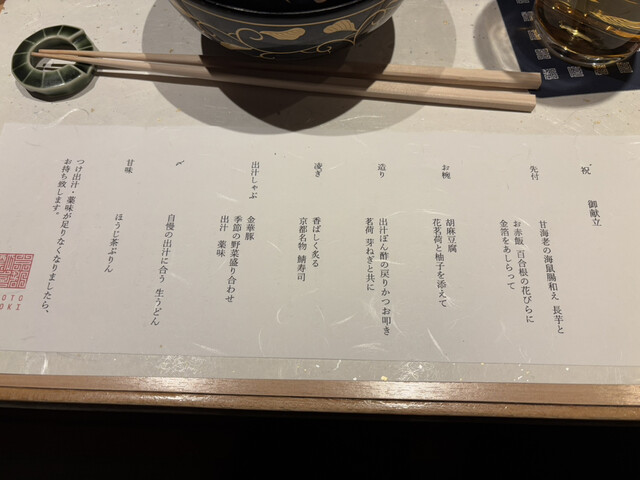 祝
御献立
先付
甘海老の海鼠腸和え 長芋と
お赤飯 百合根の花びらに
金箔をあしらって
お椀
胡麻豆腐
花茗荷と柚子を添えて
造り
出汁ぽん酢の戻りかつお叩き
茗荷 芽ねぎと共に
凌ぎ
香ばしく炙る
京都名物 鯖寿司
出汁しゃぶ
金華豚
季節の野菜盛り合わせ
出汁 薬味
〆
自慢の出汁に合う 生うどん
甘味
ほうじ茶ぷりん
つけ出汁・薬味が足りなくなりましたら、
お持ち致します。
OTO
OKI